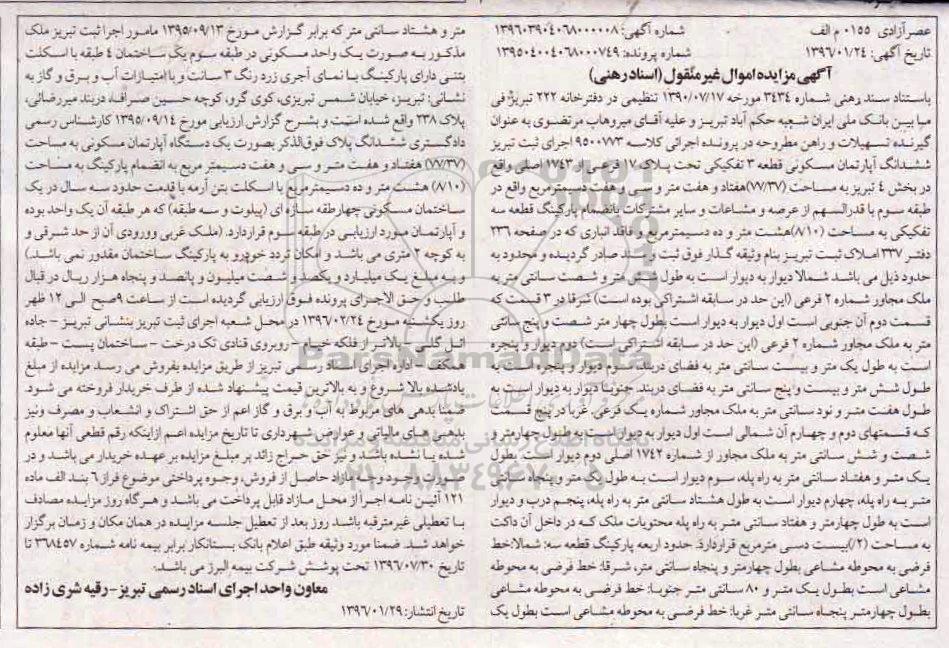 عصرآزادی ۰۱۵۵ م الف
شماره آگهی: ۱۳۹۶۰۳۹۰۴۰۶۸۰۰۰۰۰۸
تاریخ آگهی: ۱۳۹۶/۰۱/۲۴
شماره پرونده: ۱۳۹۵۰۴۰۰۴۰۶۸۰۰۰۷۴۹
آگهی مزایده اموال غیر منقول (اسناد رهنی)
باستناد سند رهنی شماره ۳۴۳۴ مورخه ۱۳۹۰/۰۷/۱۷ تنظیمی در دفترخانه ۲۲۲ تبریز فی
ما بین بانک ملی ایران شعبه حکم آباد تبریز و علیه آقای میروهاب مرتضوی به عنوان
گیرنده تسهیلات و راهن مطروحه در پرونده اجرائی کلاسه ۹۵۰۰۷۷۳ اجرای ثبت تبریز
ششدانگ آپارتمان مسکونی قطعه ۳ تفکیکی تحت پلاک ۱۷ فرعی از ۱۷۴۳ اصلی واقع
در بخش ۴ تبریز به مساحت (۷۷/۳۷) هفتاد و هفت متر و سی و هفت دسیمترمربع واقع در
طبقه سوم با قدرالسهم از عرصه و مشاعات و سایر مشترکات بانضمام پارکینگ قطعه سه
تفکیکی به مساحت (۸/۱۰) هشت متر و ده دسیمترمربع و فاقد انباری که در صفحه ۲۳۶
دفتر ۳۳۷ املاک ثبت تبریز بنام وثیقه گذار فوق ثبت و سند صادر گردیده و محدود به
حدود ذیل می باشد شمالا دیوار به دیوار است به طول متر و شصت سانتی متر به
ملک مجاور شماره ۲ فرعی (این حد در سابقه اشتراکی بوده است) شرقا در ۳ قیمت که
قسمت دوم آن جنوبی است اول دیوار به دیوار است بطول چهار متر شصت و پنج سانتی
متر به ملک مجاور شماره ۲ فرعی (این حد در سابقه اشتراکی است) دوم دیوار و پنجره
است به طول یک متر و بیست سانتی متر به فضای دربند، سوم دیوار و پنجره است به
طول شش متر و بیست و پنج سانتی متر به فضای دربند. جنوبا دیوار به دیوار است به
طول هفت متر و نود سانتی متر به ملک مجاور شماره یک فرعی. غربا در پنج قسمت
که قسمتهای دوم و چهارم آن شمالی است اول دیوار به دیوار است به طول چهارمتر و
شصت و شش سانتی متر به ملک مجاور از شماره ۱۷۴۲ اصلی دوم دیوار است بطول
یک متر و هفتاد سانتی متر به راه پله، سوم دیوار است به طول دو متر و پنجاه سانتی
متر به راه پله، چهارم دیوار است به طول هشتاد سانتی متر به راه پله، پنجم درب و دیوار
است به طول چهارمتر و هفتاد سانتی متر به راه پله محتویات ملک که در داخل آن داکت
به مساحت (/۲۰) بیست دسی مترمربع قرار دارد. حدود اربعه پارکینگ قطعه سه: شمالا: خط
فرضی به محوطه مشاعی بطول چهارمتر و پنجاه سانتی متر، شرقا: خط فرضی به محوطه
مشاعی است بطول یک متر و ۸۰ سانتی متر جنوبا: خط فرضی به محوطه مشاعی
بطول چهارمتر پنجاه سانتی متر غربا: خط فرضی به محوطه مشاعی است بطول یک
متر و هشتاد سانتی متر که برابر گزارش مورخ ۱۳۹۵/۰۹/۱۳ مامور اجرا ثبت تبریز ملک
مذکور به صورت یک واحد مسکونی در طبقه سوم یک ساختمان ۴ طبقه با اسکلت
بتنی دارای پارکینگ با نمای آجری زرد رنگ ۳ سانت و با امتیازات آب و برق و گاز به
نشانی: تبریز، خیابان شمس تبریزی، کوی گرو، کوچه حسین صراف، دربند میررضائی،
پلاک ۲۳۸ واقع شده است و بشرح گزارش ارزیابی مورخ ۱۳۹۵/۰۹/۱۴ کارشناس رسمی
دادگستری ششدانگ پلاک فوق الذکر بصورت یک دستگاه آپارتمان مسکونی به مساحت
(۷۷/۳۷) هفتاد و هفت متر و سی و هفت دسیمتر مربع به انضمام پارکینگ به مساحت
(۸/۱۰) هشت متر و ده دسیمترمربع با اسکلت بتن آرمه با قدمت حدود سه سال در یک
ساختمان مسکونی چهارطقه سازه ای (پیلوت و سه طبقه) که هر طبقه آن یک واحد بوده
و آپارتمان مورد ارزیابی در طبقه سوم قرار دارد. (ملک غربی وورودی آن از حد شرقی و
به کوچه ۲ متری می باشد و امکان تردد خودرو به پارکینگ ساختمان مقدور نمی باشد)
و به مبلغ یک میلیارد و یکصد و شصت میلیون و پانصد و پنجاه هزار ریال در قبال
طلب و حق الاجرای پرونده فوق ارزیابی گردیده است از ساعت ۹ صبح الی ۱۲ ظهر
روز یکشنبه مورخ ۱۳۹۶/۰۲/۲۴ در محل شعبه اجرای ثبت تبریز بنشانی تبریز - جاده
ائل گلی - بالاتر از فلکه خیام - روبروی قنادی تک درخت - ساختمان پست - طبقه
همکف - اداره اجرای اسناد رسمی تبریز از طریق مزایده بفروش می رسد. مزایده از مبلغ
یادشده بالا شروع و به بالاترین قیمت پیشنهاد شده از طرف خریدار فروخته می شود.
ضمنا بدهی های مربوط به آب و برق و گاز اعم از حق اشتراک و انشعاب و مصرف ونیز
بدهی های مالیاتی و عوارض شهرداری تا تاریخ مزایده اعم ازاینکه رقم قطعی آنها معلوم
شده یا نشده باشد و نیز حق حراج زائد بر مبلغ مزایده بر عهده خریدار می باشد و در
صورت وجود و مازاد حاصل از فروش، وجوه پرداختی موضوع فراز ۶ بند الف ماده
۱۲۱ آئین نامه اجرا از محل مازاد قابل پرداخت می باشد و هرگاه روز مزایده مصادف
با تعطیلی غیرمترقبه باشد روز بعد از تعطیل جلسه مزایده در همان مکان و زمان برگزار
خواهد شد. ضمنا مورد وثیقه طبق اعلام بانک بستانکار برابر بیمه نامه شماره ۳۶۸۴۵۷ تا
تاریخ ۱۳۹۶/۰۷/۳۰ تحت پوشش شرکت بیمه البرز می باشد.
معاون واحد اجرای اسناد رسمی تبریز - رقیه شری زاده
تاریخ انتشار: ۱۳۹۶/۰۱/۲۹
ParsNamadData
۰۲۱-۸۸۳۴۹۶۷۰-۵